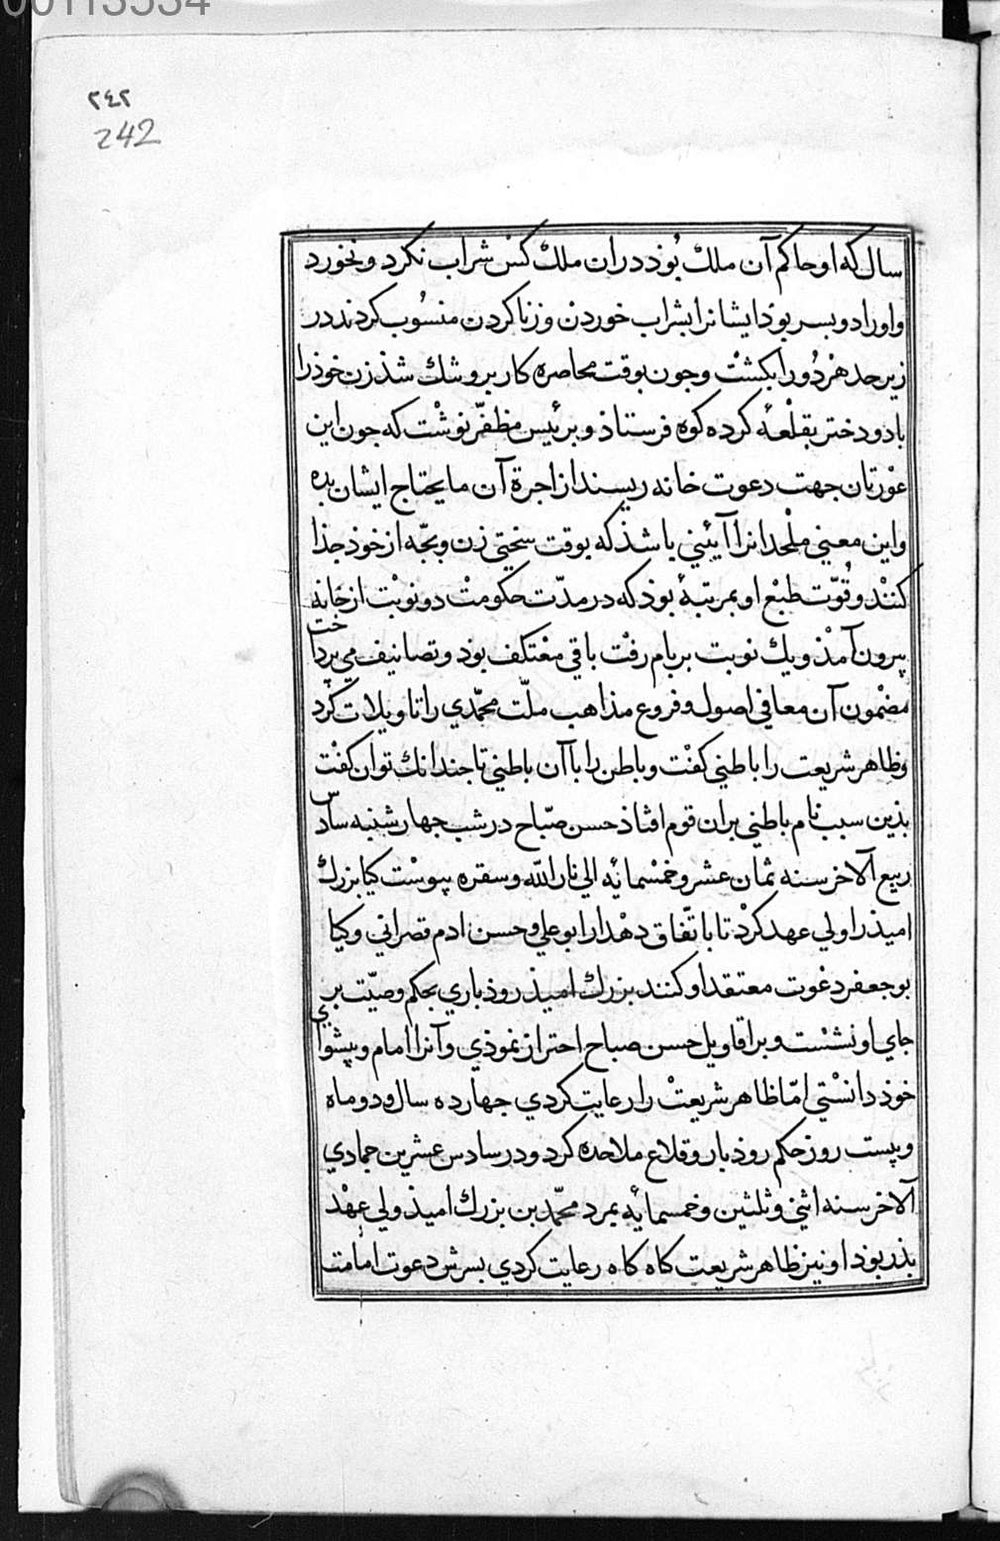 00113534
٢٤٢
242
سال كه او حاكم آن ملك بُوذ دران ملك كس شراب نكرد و نخورد
واورا دو بسر بوذ ايشانرا بشراب خوردن و زنا كردن منسُوب كردند در
زير حد هرْدُو را بكشتْ وجون بوقت محاصره كار برو شك شذ زن خوذ را
با دو دختر بقلْعهٔ كرده كوه فرستاذ و برئيس مظفّر نوشْت كه جون اين
عوْرتان جهت دعوت خانه ريسند از اجرة آن ما يحتاج ايشان بده
واين معني ملْحدانرا آئيني باشذ كه بوقت سختي زن وبجّه از خوذ جذا
كنْند وقُوّت طبْع او بمرتبهٔ بوذ كه در مدّت حكومتْ دو نوبْت از خانه
بيرون آمذ ويك نوبت بر بام رفْت باقي معْتكف بوذ و تصانيف مي پرداخت
مضْمون آن معاني اصول و فروع مذاهب ملّت محمّدي را تاويلات كرد
وظاهر شريعت را باطني كفْت و باطن را باآن باطني تا جندانك توان كفْت
بذين سبب نام باطني بران قوم افتاذ حسن صبّاح در شب جهارشنبه سادس
ربيع الآخر سنه ثمان عشر و خمْسمائه الي نار اللّه وسقره پيوسْت كيا بزرك
اميذ را ولي عهد كرْد تا باتّفاق دهْدار ابو علي و حسن ادم قصراني وكيا
بو جعفر دعوت معتقد او كنند بزرك اميذ روذباري بحكم وصيّت بر
جاي او نشسْت و بر اقاويل حسن صباح احتراز نموذي وآنرا امام و پيشواي
خوذ دانسْتي امّا ظاهر شريعتْ را رعايت كردي جهارده سال ودو ماه
وبيست روز حكم روذبار و قلاع ملاحده كرد ودر سادس عشرين جمادي
الآخر سنه اثني وثلثين و خمسمائه بمرد محمّد بن بزرك اميذ ولي عهْد
بذر بود او نيز ظاهر شريعت كاه كاه رعايت كردي بسرش دعوت امامت